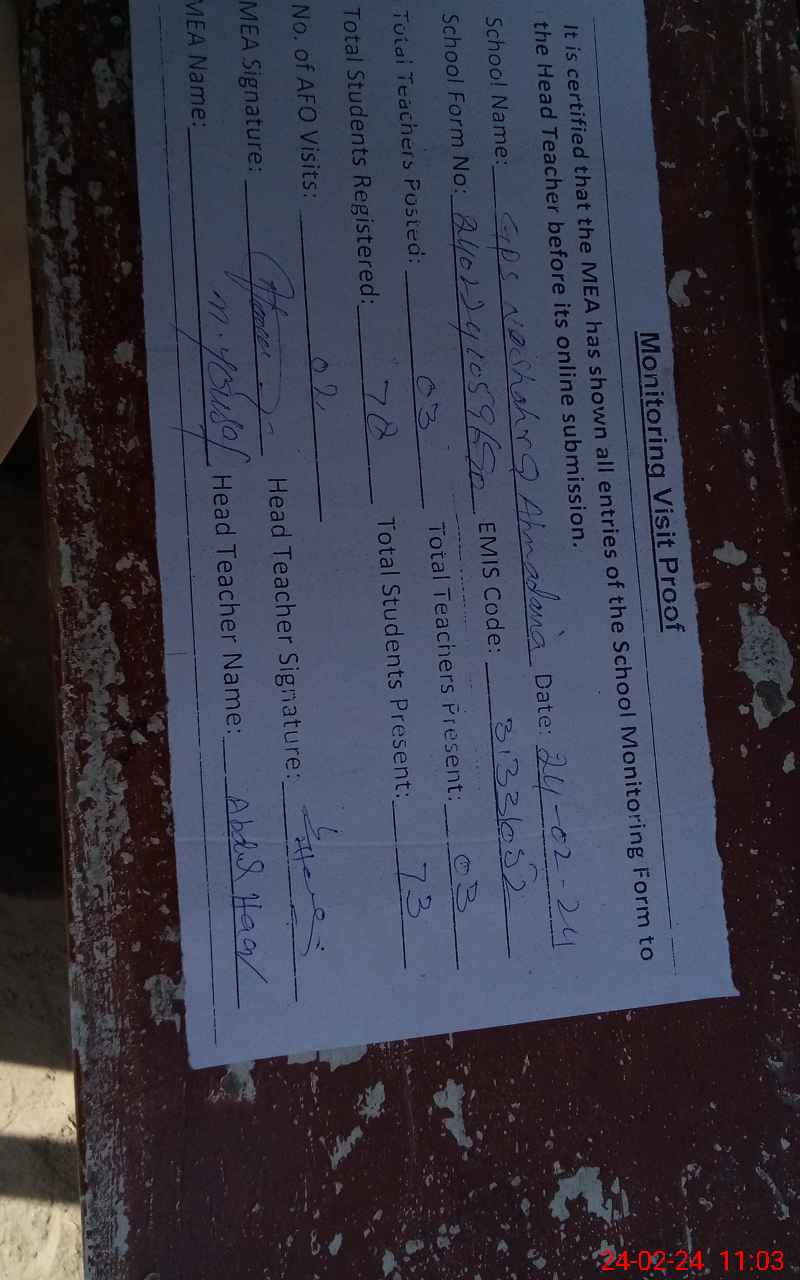 Monitoring Visit Proof
It is certified that the MEA has shown all entries of the School Monitoring Form to
the Head Teacher before its online submission.
School Name: GPS Ahmadania Date: 24-02-24
School Form No: EMIS Code:
Total Teachers Posted: 03 Total Teachers Present: 03
Total Students Registered: 78 Total Students Present: 73
No. of AFO Visits: 02
MEA Signature: Head Teacher Signature:
MEA Name: M. Yousaf Head Teacher Name: Abdul Haq
24-02-24 11:03